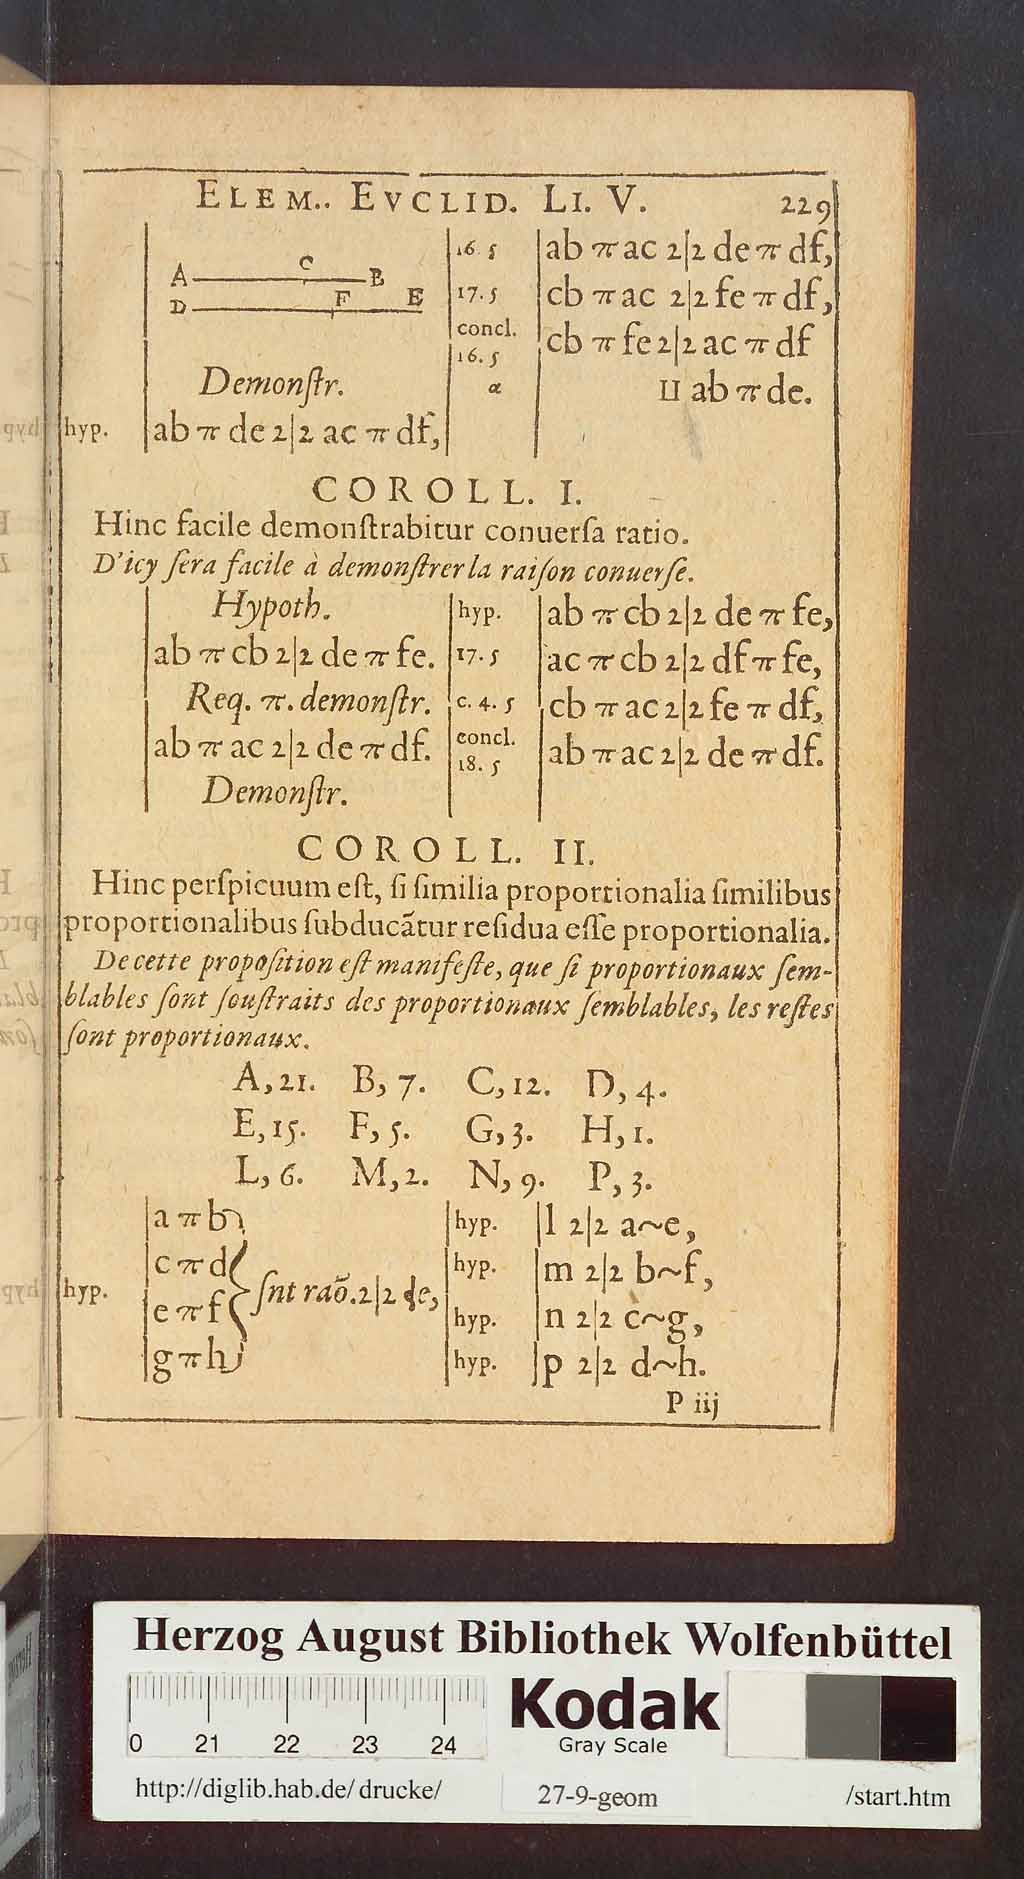 ELEM.. EVCLID. LI. V. 229
A C B
D F E
Demonſtr.
hyp. ab π de 2|2 ac π df,
16. 5 ab π ac 2|2 de π df,
17. 5 cb π ac 2|2 fe π df,
concl. cb π fe 2|2 ac π df
16. 5
α ⊔ ab π de.
COROLL. I.
Hinc facile demonſtrabitur conuerſa ratio.
D'icy ſera facile à demonſtrer la raiſon conuerſe.
Hypoth.
ab π cb 2|2 de π fe.
Req. π. demonſtr.
ab π ac 2|2 de π df.
Demonſtr.
hyp. ab π cb 2|2 de π fe,
17. 5 ac π cb 2|2 df π fe,
c. 4. 5 cb π ac 2|2 fe π df,
concl. ab π ac 2|2 de π df.
18. 5
COROLL. II.
Hinc perſpicuum eſt, ſi ſimilia proportionalia ſimilibus
proportionalibus ſubducãtur reſidua eſſe proportionalia.
De cette propoſition eſt manifeſte, que ſi proportionaux ſem-
blables ſont ſouſtraits des proportionaux ſemblables, les reſtes
ſont proportionaux.
A, 21. B, 7. C, 12. D, 4.
E, 15. F, 5. G, 3. H, 1.
L, 6. M, 2. N, 9. P, 3.
a π b
c π d
hyp. e π f ſnt raõ. 2|2 de,
g π h
hyp. l 2|2 a~e,
hyp. m 2|2 b~f,
hyp. n 2|2 c~g,
hyp. p 2|2 d~h.
P iij
Herzog August Bibliothek Wolfenbüttel
0 21 22 23 24
Kodak
Gray Scale
http://diglib.hab.de/drucke/ 27-9-geom /start.htm